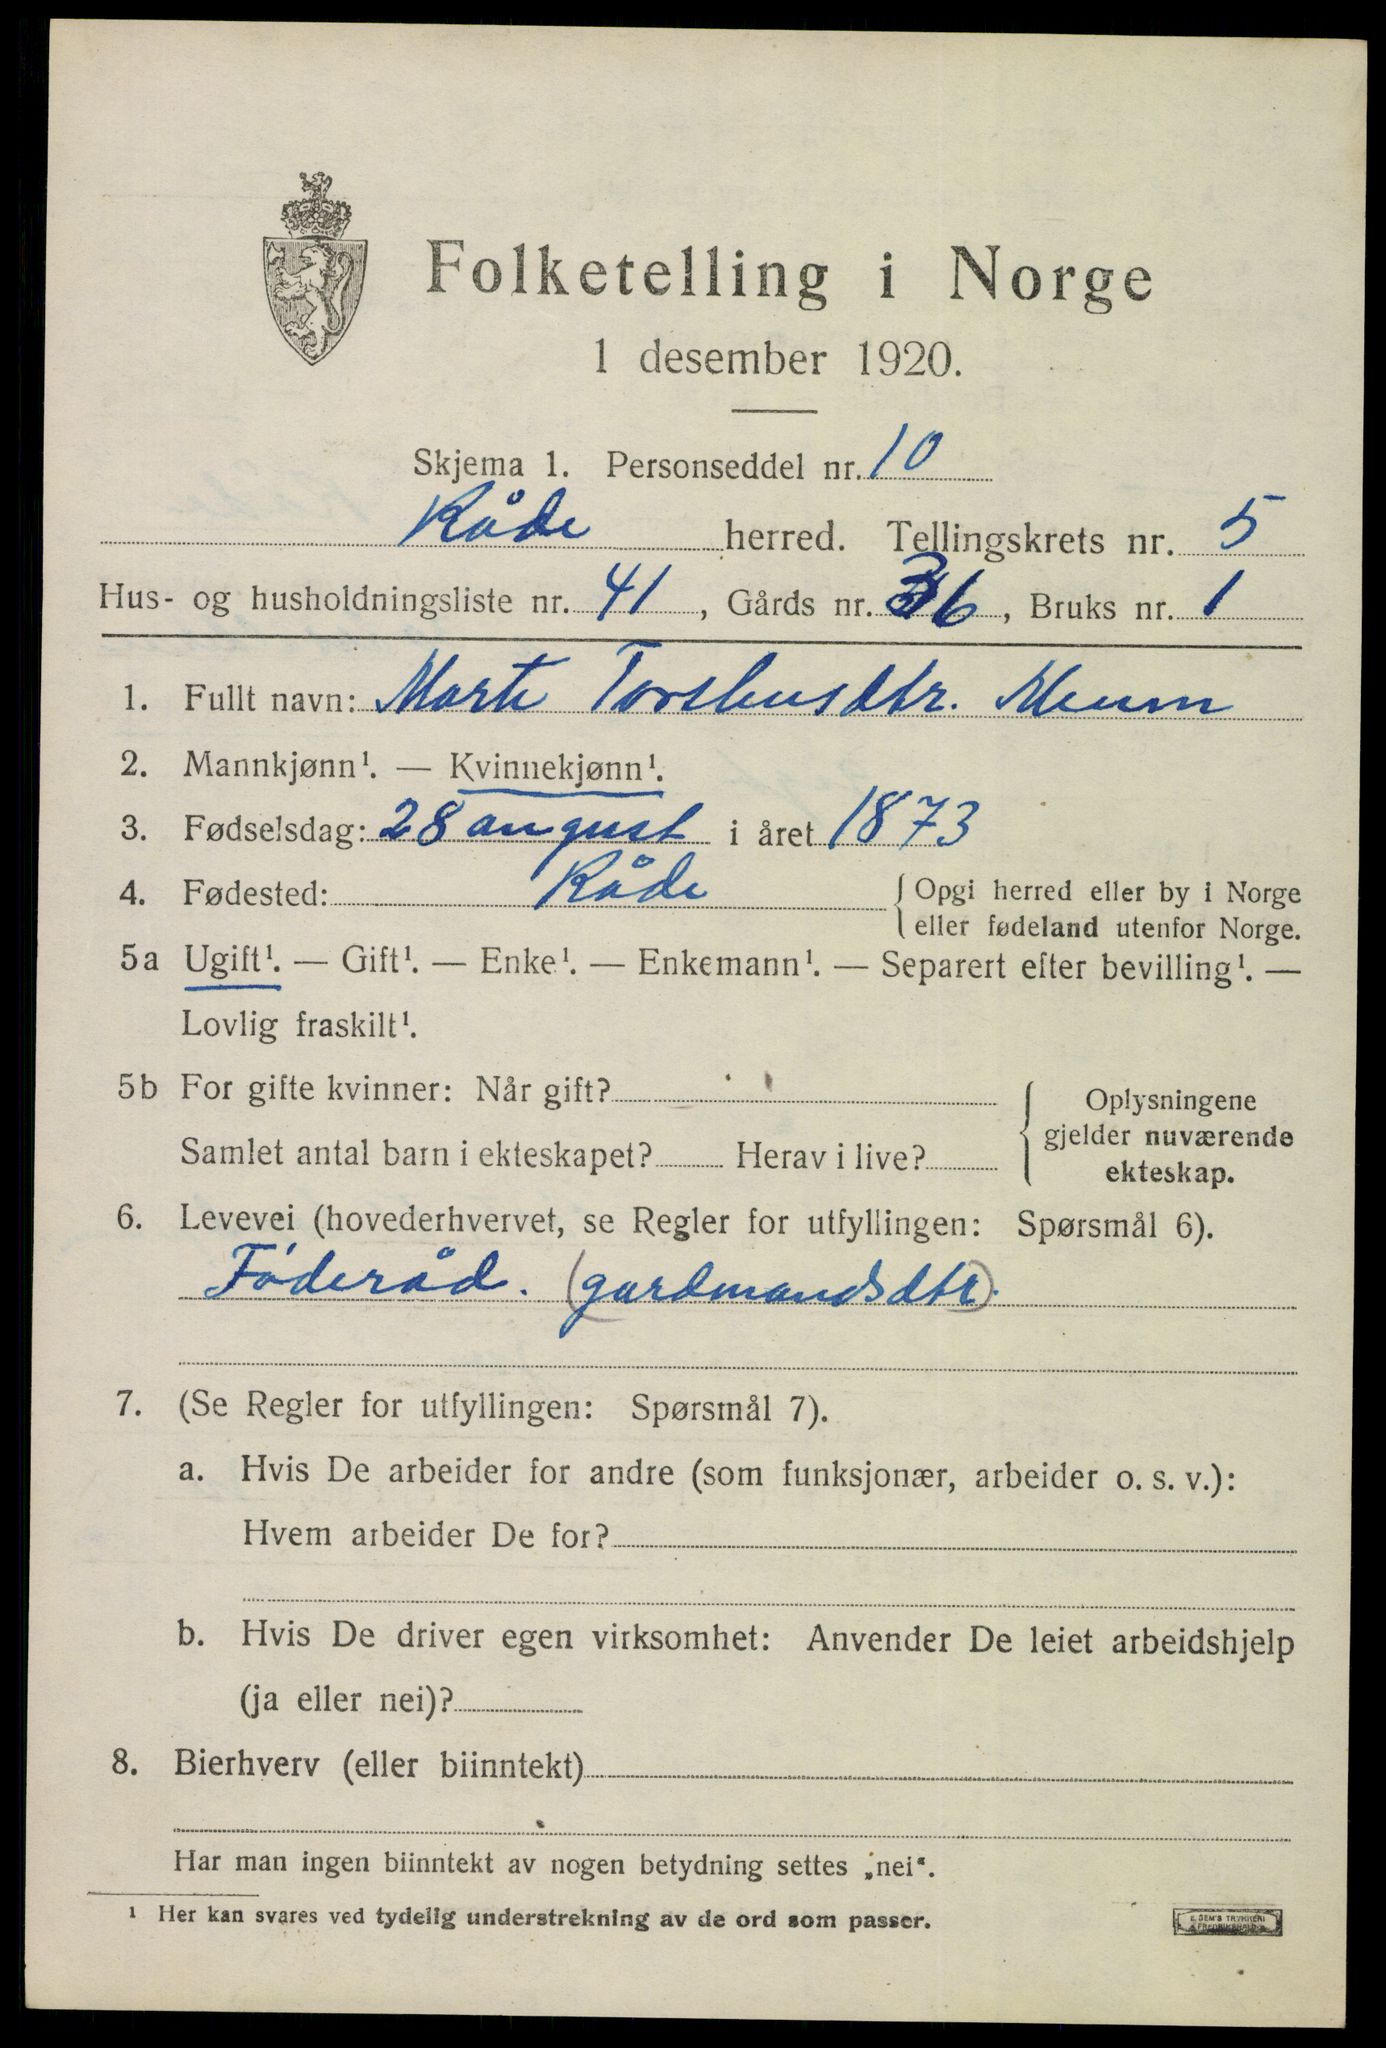 Folketelling i Norge
1 desember 1920.
Skjema 1. Personseddel nr. 10
Råde herred. Tellingskrets nr. 5
Hus- og husholdningsliste nr. 41, Gårds nr. 36, Bruks nr. 1
1. Fullt navn: Marte Torstensdtr.
2. Mannkjønn¹. — Kvinnekjønn¹.
3. Fødselsdag: 28 august i året 1873
4. Fødested: Råde { Opgi herred eller by i Norge
eller fødeland utenfor Norge.
5a Ugift¹. — Gift¹. — Enke¹. — Enkemann¹. — Separert efter bevilling¹. —
Lovlig fraskilt¹.
5b For gifte kvinner: Når gift?
Samlet antal barn i ekteskapet? Herav i live?
Oplysningene
gjelder nuværende
ekteskap.
6. Levevei (hovederhvervet, se Regler for utfyllingen: Spørsmål 6).
Föderåd. (gardmandsdtr).
7. (Se Regler for utfyllingen: Spørsmål 7).
a. Hvis De arbeider for andre (som funksjonær, arbeider o. s. v.):
Hvem arbeider De for?
b. Hvis De driver egen virksomhet: Anvender De leiet arbeidshjelp
(ja eller nei)?
8. Bierhverv (eller biinntekt)
Har man ingen biinntekt av nogen betydning settes „nei“.
¹ Her kan svares ved tydelig understrekning av de ord som passer.
E. SEM'S TRYKKERI
FREDRIKSHALD